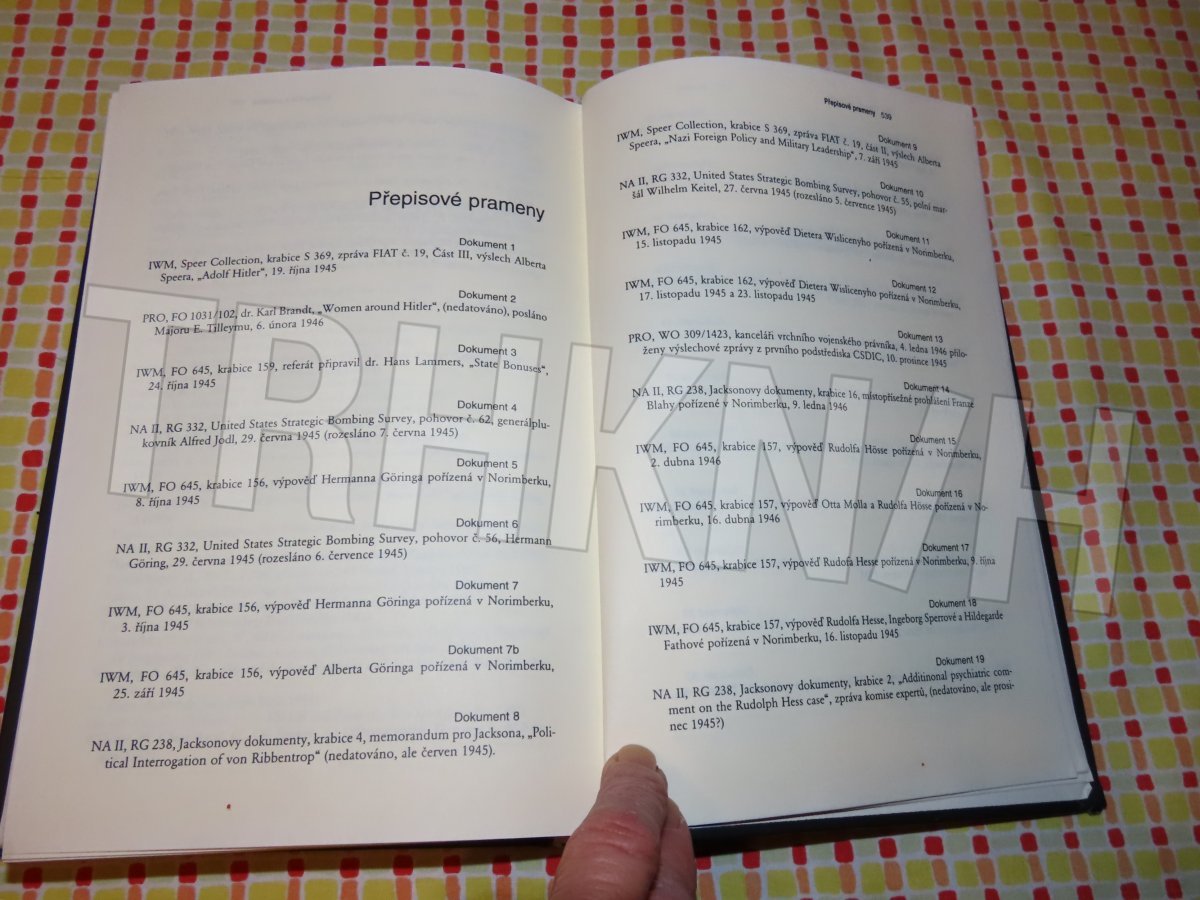 Přepisové prameny
Dokument 1
IWM, Speer Collection, krabice S 369, zpráva FIAT č. 19, Část III, výslech Alberta
Speera, „Adolf Hitler“, 19. října 1945
Dokument 2
PRO, FO 1031/102, dr. Karl Brandt, „Women around Hitler“, (nedatováno), posláno
Majoru E. Tilleymu, 6. února 1946
Dokument 3
IWM, FO 645, krabice 159, referát připravil dr. Hans Lammers, „State Bonuses“,
24. října 1945
Dokument 4
NA II, RG 332, United States Strategic Bombing Survey, pohovor č. 62, generálplu-
kovník Alfred Jodl, 29. června 1945 (rozesláno 7. června 1945)
Dokument 5
IWM, FO 645, krabice 156, výpověď Hermanna Göringa pořízená v Norimberku,
8. října 1945
Dokument 6
NA II, RG 332, United States Strategic Bombing Survey, pohovor č. 56, Hermann
Göring, 29. června 1945 (rozesláno 6. července 1945)
Dokument 7
IWM, FO 645, krabice 156, výpověď Hermanna Göringa pořízená v Norimberku,
3. října 1945
Dokument 7b
IWM, FO 645, krabice 156, výpověď Alberta Göringa pořízená v Norimberku,
25. září 1945
Dokument 8
NA II, RG 238, Jacksonovy dokumenty, krabice 4, memorandum pro Jacksona, „Poli-
tical Interrogation of von Ribbentrop“ (nedatováno, ale červen 1945).
Přepisové prameny 539
Dokument 9
IWM, Speer Collection, krabice S 369, zpráva FIAT č. 19, část II, výslech Alberta
Speera, „Nazi Foreign Policy and Military Leadership“, 7. září 1945
Dokument 10
NA II, RG 332, United States Strategic Bombing Survey, pohovor č. 55, polní mar-
šál Wilhelm Keitel, 27. června 1945 (rozesláno 5. července 1945)
Dokument 11
IWM, FO 645, krabice 162, výpověď Dietera Wislicenyho pořízená v Norimberku,
15. listopadu 1945
Dokument 12
IWM, FO 645, krabice 162, výpověď Dietera Wislicenyho pořízená v Norimberku,
17. listopadu 1945 a 23. listopadu 1945
Dokument 13
PRO, WO 309/1423, kanceláři vrchního vojenského právníka, 4. ledna 1946 přilo-
ženy výslechové zprávy z prvního podstřediska CSDIC, 10. prosince 1945
Dokument 14
NA II, RG 238, Jacksonovy dokumenty, krabice 16, místopřísežné prohlášení Franze
Blahy pořízené v Norimberku, 9. ledna 1946
Dokument 15
IWM, FO 645, krabice 157, výpověď Rudolfa Hösse pořízená v Norimberku,
2. dubna 1946
Dokument 16
IWM, FO 645, krabice 157, výpověď Otta Molla a Rudolfa Hösse pořízená v No-
rimberku, 16. dubna 1946
Dokument 17
IWM, FO 645, krabice 157, výpověď Rudofa Hesse pořízená v Norimberku, 9. října
1945
Dokument 18
IWM, FO 645, krabice 157, výpověď Rudolfa Hesse, Ingeborg Sperrové a Hildegarde
Fathové pořízená v Norimberku, 16. listopadu 1945
Dokument 19
NA II, RG 238, Jacksonovy dokumenty, krabice 2, „Additinonal psychiatric com-
ment on the Rudolph Hess case“, zpráva komise expertů, (nedatováno, ale prosi-
nec 1945?)
TRHKNIH